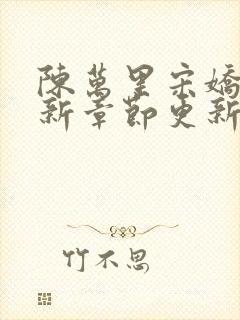 陳萬里宗嬌
新章節更新
竹不思